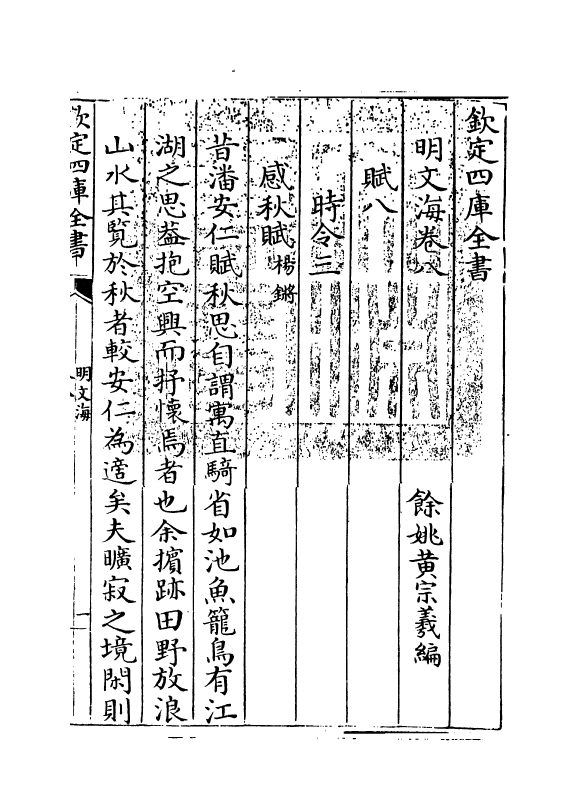 欽定四庫全書
明文海卷八
餘姚黄宗羲編
賦八
時令三
感秋賦 楊鏘
昔潘安仁賦秋思自謂寓直騎省如池魚籠鳥有江
湖之思葢抱空興而抒懷焉者也余擯跡田野放浪
山水其覧於秋者較安仁為適矣夫曠寂之境閑則
欽定四庫全書
明文海
一